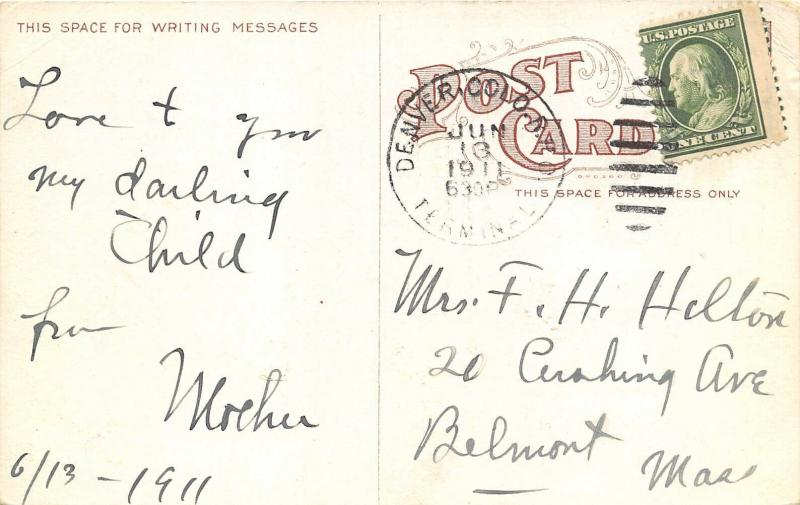 THIS SPACE FOR WRITING MESSAGES
Love & you
my darling
Child
from
Mother
6/13 - 1911
POST
CARD
THIS SPACE FOR ADDRESS ONLY
U.S. POSTAGE
ONE CENT
DENVER, COLO.
JUN
13
1911
630P
TERMINAL
Mrs. F. H. Hilton
20 Cushing Ave
Belmont
Mass